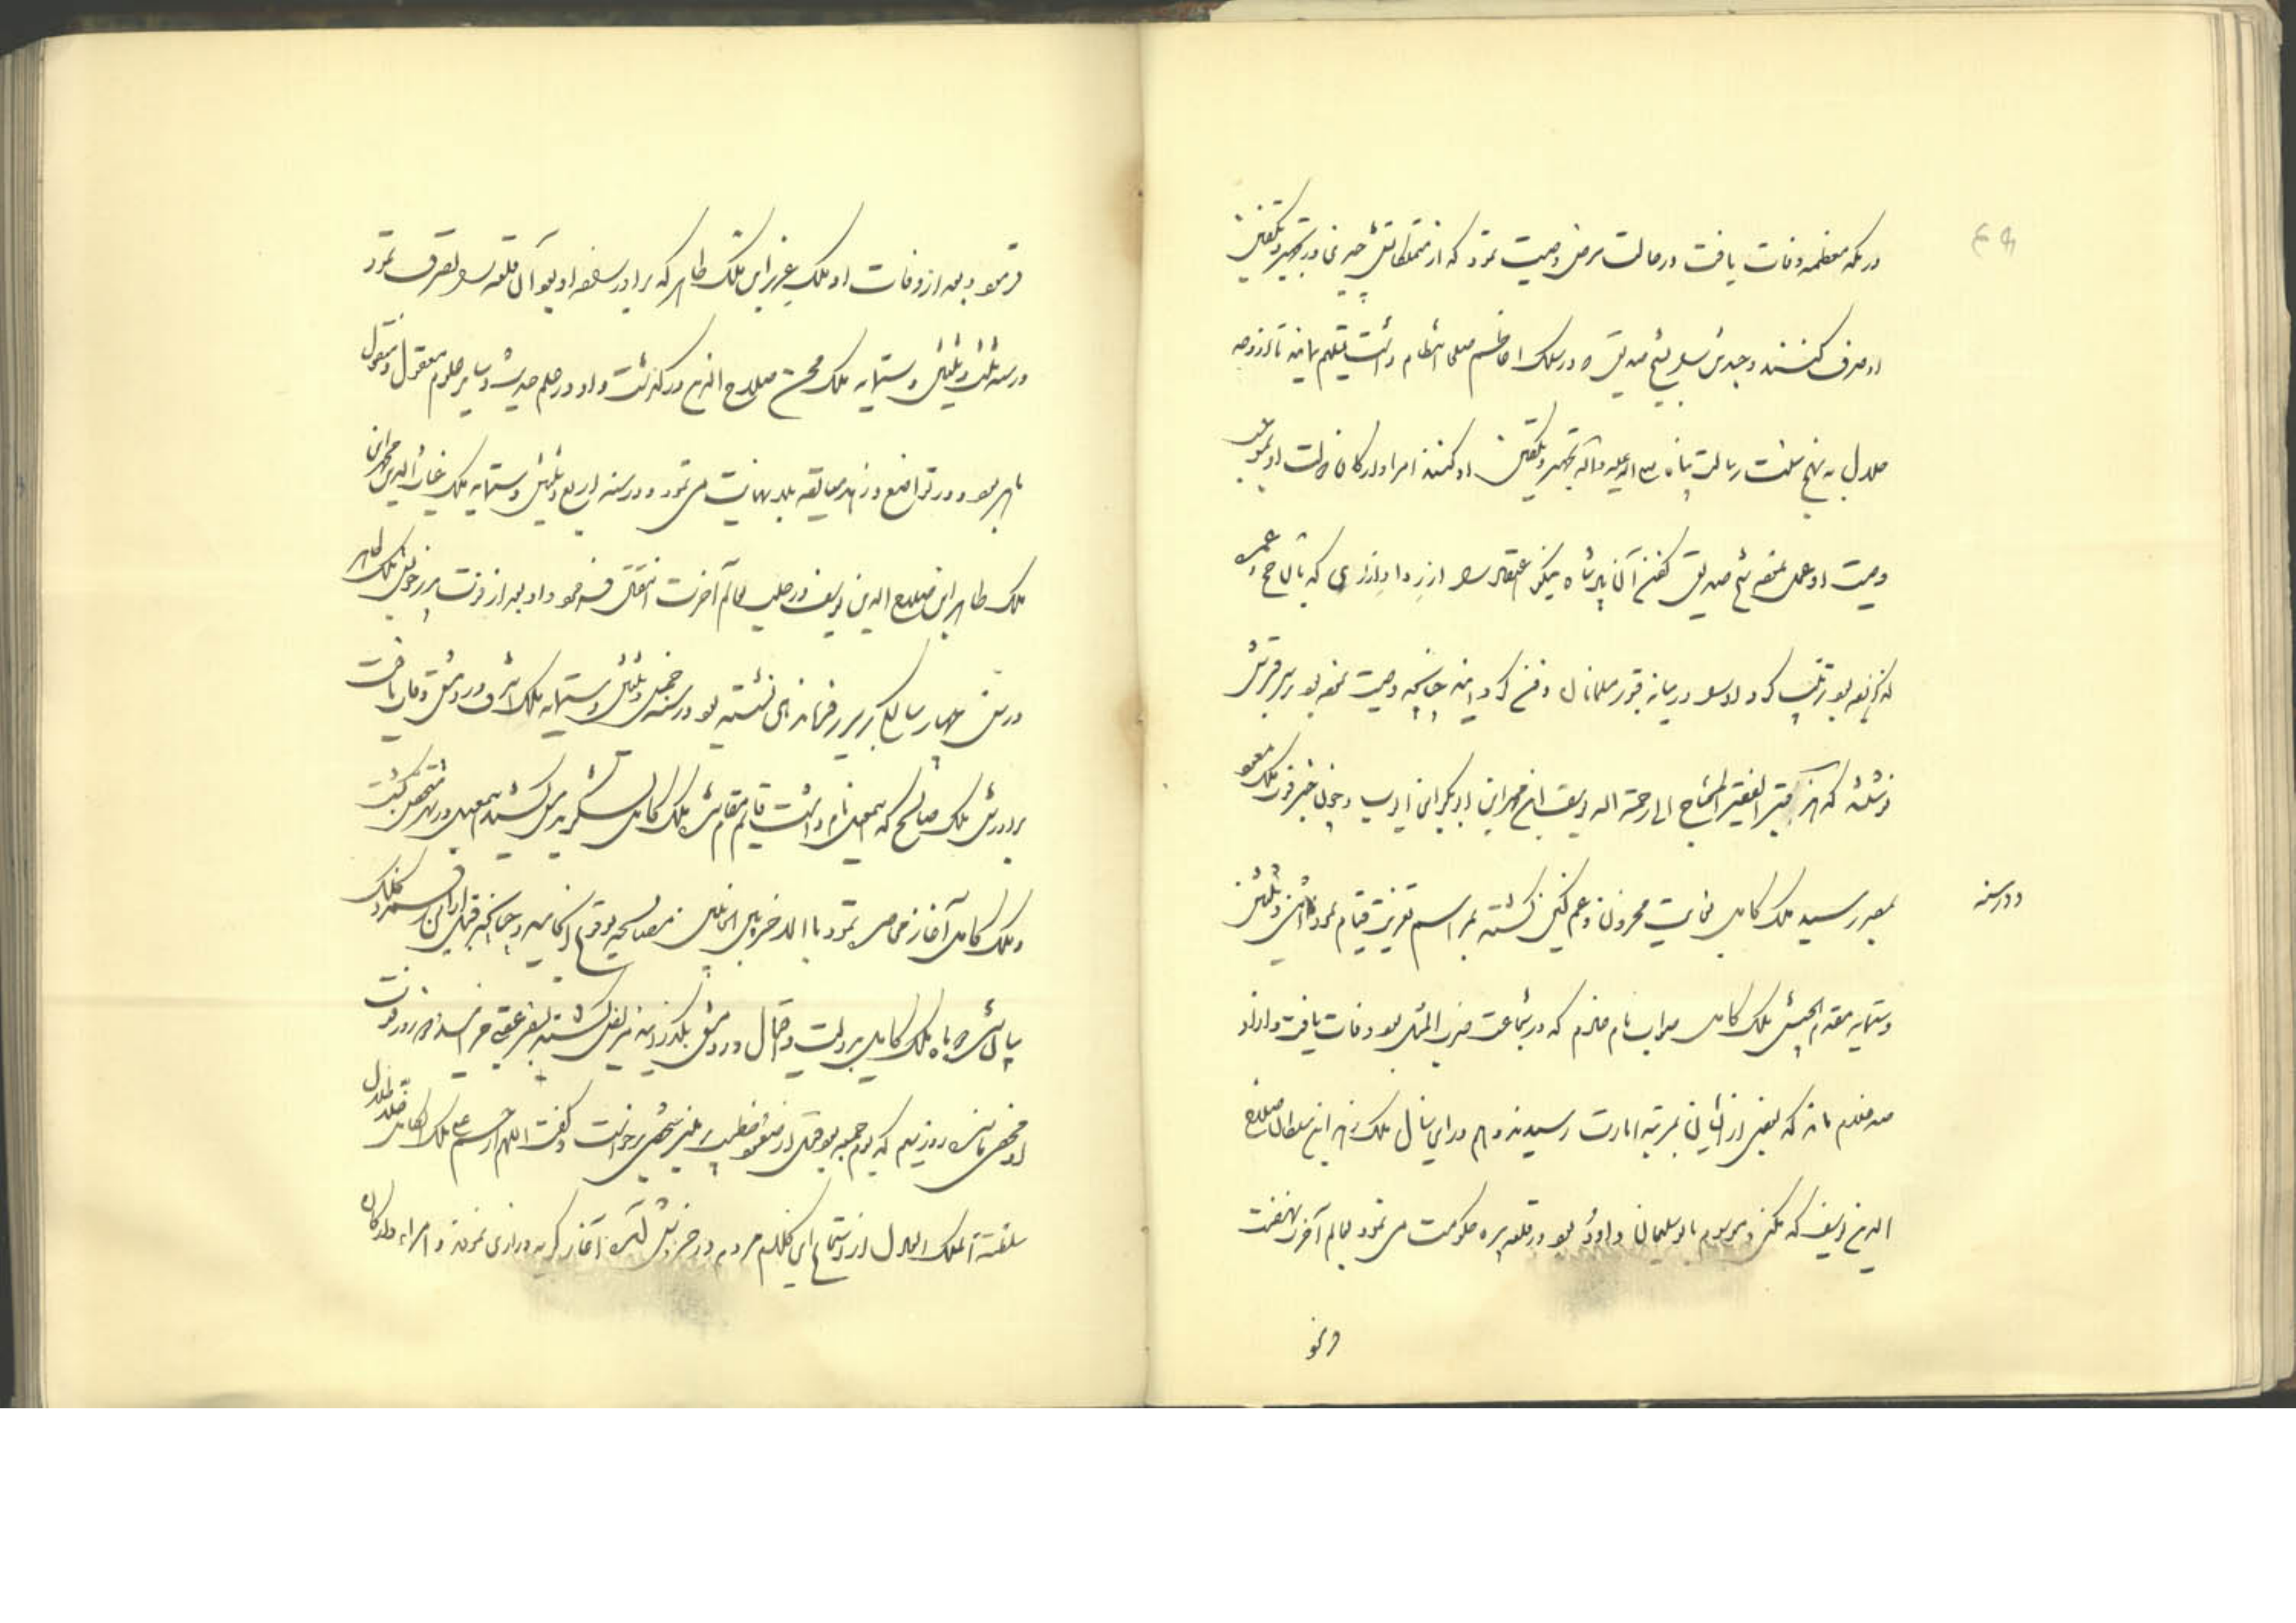 در مکه معظمه وفات یافت و در حالت مرض وصیت نمود که از متملکاتش چیزی در تجهیز و تکفین
او صرف نکنند و جسدش را بشیخ صدیق که در سلک اعاظم صلحا انتظام داشت تسلیم نمایند تا از وجه
حلال به نهج سنت رسالت پناه صلی الله علیه و آله تجهیز و تکفین او کنند امرا و ارکان دولت او بموجب
وصیت او عمل نموده شیخ صدیق کفن آن پادشاه نیکو اعتقاد را از ردا و ازاری که با آن حج و عمره
گزارده بود ترتیب کرد و او را در میانه قبور مسلمانان دفن کردند چنانچه وصیت نموده بود بر سر قبرش
نوشتند که هذا قبر الفقیر المحتاج الی رحمة الله یوسف ابن محمد ابن ابوبکر ابن ایوب و چون خبر فوت ملک مسعود
بمصر رسید ملک کامل بغایت محزون و غمگین گشته بمراسم تعزیت قیام نمود
و در سنه
اثنی و ثلثین
و ستمایه مقدم الجیش ملک کامل صواب نام خادم که در شجاعت ضرب المثل بود وفات یافت و از او
صد خادم ماند که بعضی از ایشان بمرتبه امارت رسیدند و هم در این سال ملک زاهر ابن سلطان صلاح
الدین یوسف که مکنی و موسوم بابو سلیمان داود بود و در قلعه بیره حکومت می نمود بعالم آخرت نهضت
فرمود
فرمود و بعد از وفات او ملک عزیز ابن ملک ظاهر که برادرزاده او بود آن قلعه را تصرف نمود
و در سنه ثلث و ثلثین و ستمایه ملک محسن صلاح الدین درگذشت و او در علم حدیث و سایر علوم معقول و منقول
ماهر بود و در تواضع و زهد مبالغه بلا نهایت می نمود و در سنه اربع و ثلثین و ستمایه ملک غیاث الدین محمد ابن
ملک ظاهر ابن صلاح الدین یوسف در حلب بعالم آخرت انتقال فرمود و او بعد از فوت پدر خویش ملک ظاهر
در سن چهار سالگی بر سریر فرماندهی نشسته بود و در سنه خمس و ثلثین و ستمایه ملک اشرف در دمشق وفات یافت
برادرش ملک صالح که اسمعیل نام داشت قایم مقام شد ملک کامل لشکر بدمشق کشید اسمعیل در شهر متحصن گشت
و ملک کامل آغاز محاصره نمود بالاخره بین الجانبین مصالحه بوقوع انجامید و چنانچه قبل از این
پادشاه ملک کامل بدولت و اقبال در دمشق بگذرانید مریض گشته بسفر عقبی خرامید و روز فوت
او مخفی مانده روز سیم که یوم جمعه بود قبل از صعود خطیب بر منبر شخصی برخواست و گفت اللهم ارحم علی ملک الکامل خلد ظلال
سلطنة الملک العادل از استماع این کلام مردم در خروش آمده آغاز گریه و زاری نمودند و امراء و ارکان